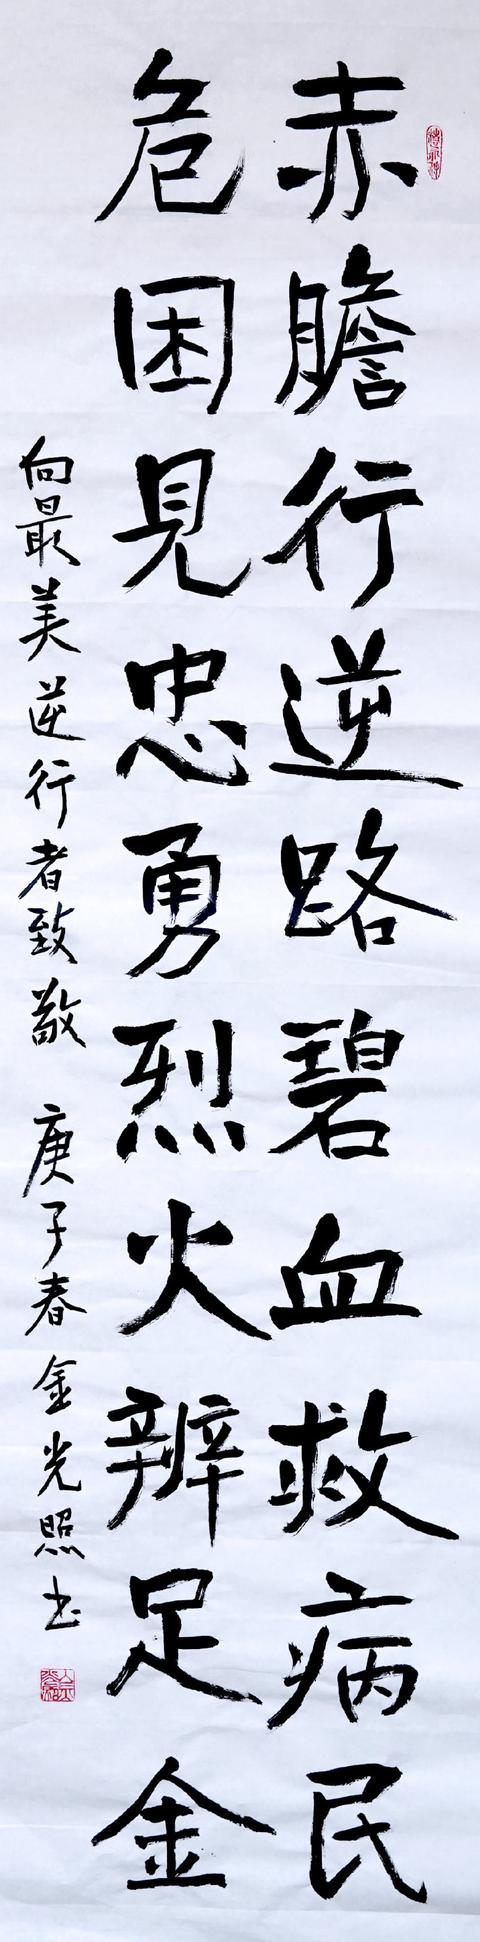 赤膽行逆路碧血救病民
危困見忠勇烈火辨足金
向最美逆行者致敬 庚子春 金光照书